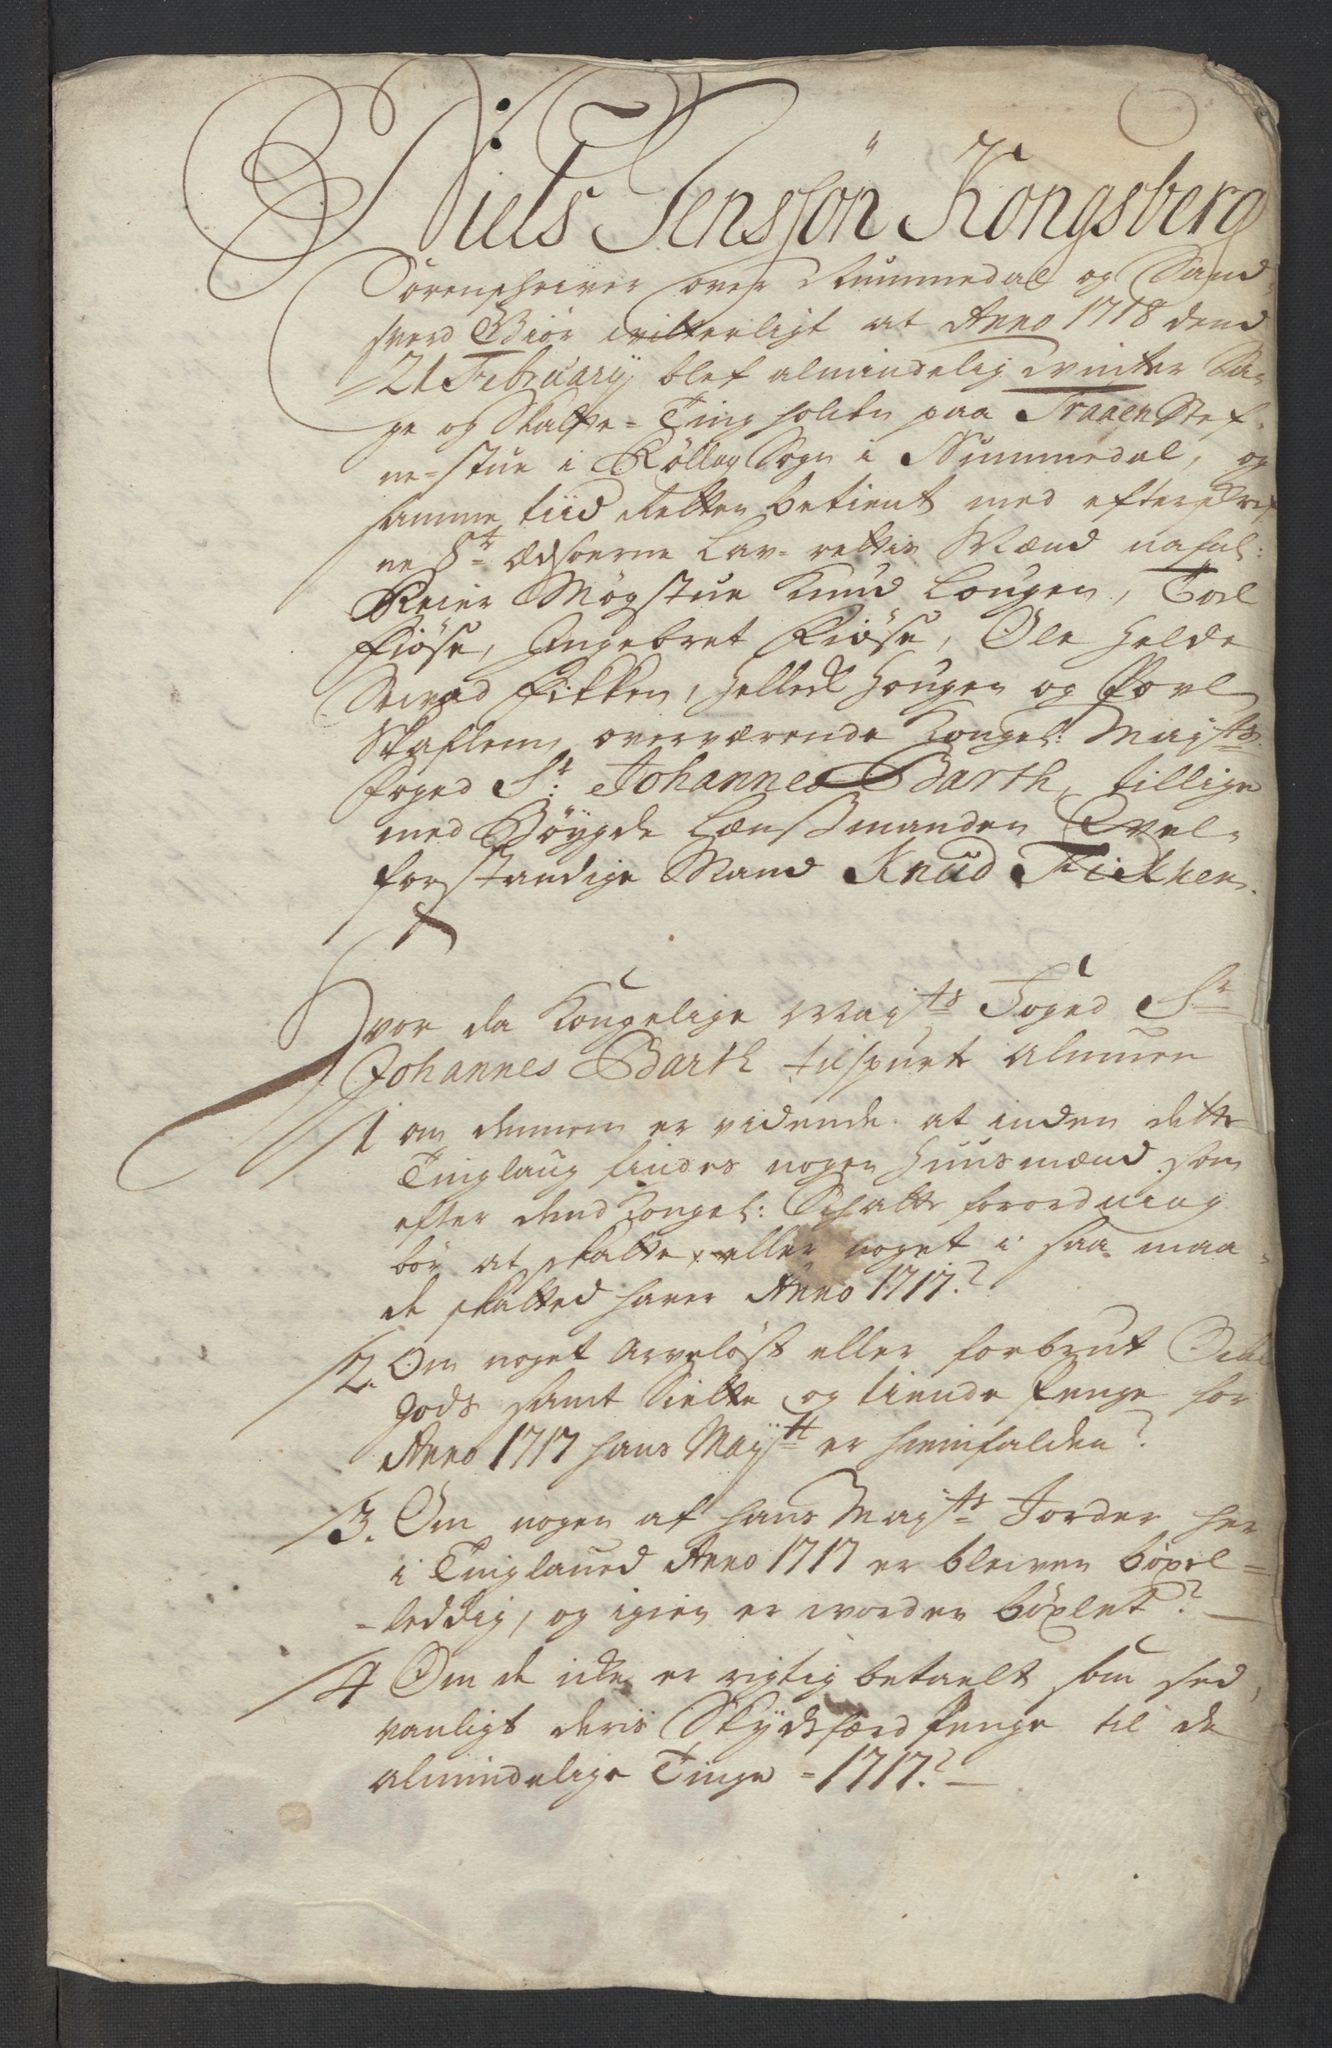 Niels Jenssøn Kongsberg
Sorenschriver over Nummedal og Sand-
sverd Giør witterligt at Anno 1718 dend
21 February blef almindelig winter Sa-
ge og Skatte-Ting holden paa Traaen Stef-
ne-stue i Rollag Sogn i Nummedal, og
samme tiid Retten betient med efterskref-
ne Ædsoerne Lav-rettis Mænd nafnl:
Reier Mogstue Knud Lougen, Toel
Fiøse, Ingebret Fiøse, Ole Helde
Fikken, Helleck Hougen og Povl
Skaflem, overværende Kongel: Mayts
foged Sr: Johannes Barth, tillige
med Bøygde Lænßmanden Evel-
forstandige Mand Knud Fickhen.
Hvor da Kongelige Mayts Foged Sr
Johannes Barth tilspurte Almuen
1 om dennem er vidende at inden dette
Tinglaug findes nogen Huusmænd som
efter dend Kongel: Schatte forordning
bør at skatte, eller noget i saa maa-
de skatted haver Anno 1717?
2. Om noget Arveløst eller forbrut Odels
gods samt Siette og tiende Penge for
Anno 1717 hans Maytt er hiemfalden?
3. Om nogen af hans Mayts Jorder her
i Tinglaued Anno 1717 er bleiven bøxel-
-leddig, og igien er worden bøxlet?
4 Om de icke er rigtig betaelt som sed-
vanligt deris Skydsfærd Penge til de
almindelige Tinge - 1717?